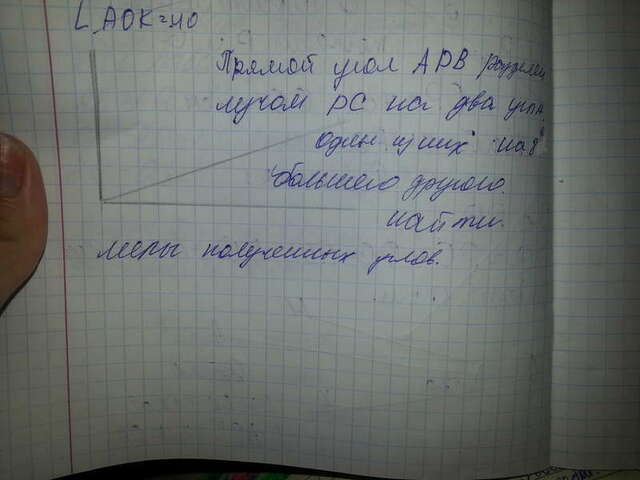 ∠ AOK=40
Прямой угол АРВ разделен
лучом РС на два угла,
один из них на 8°
большего другого.
найти
меры полученных углов.